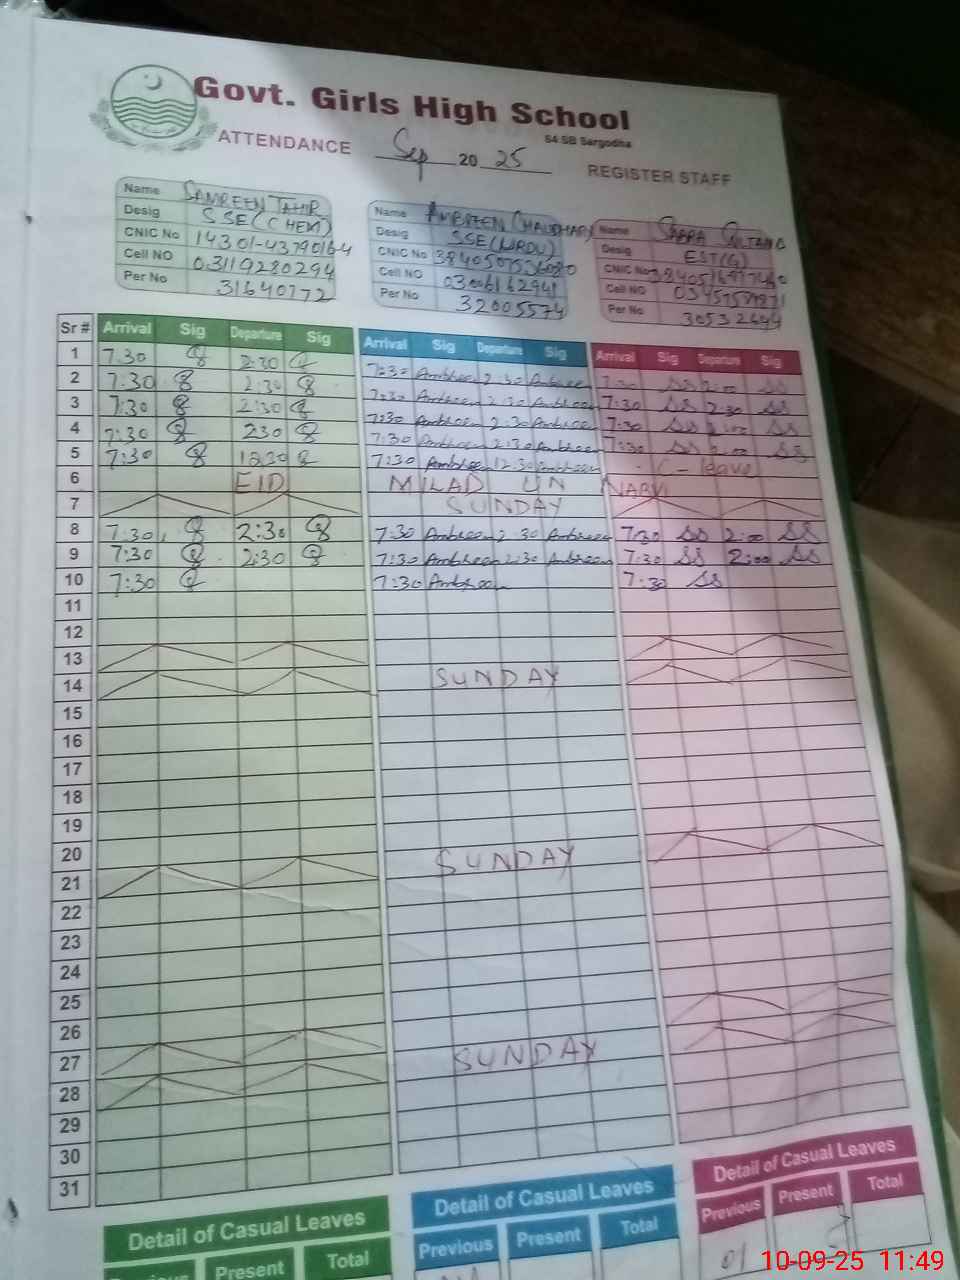 Govt. Girls High School
54 SB Sargodha
ATTENDANCE Sep 20 25 REGISTER STAFF
Name SAMREEN TAHIR
Desig SSE(CHEM)
CNIC No 14301-43790164
Cell NO 03119280294
Per No 31640772
Name AMBREEN CHAUDHARY
Desig SSE(URDU)
CNIC NO
Cell NO 03006162941
Per No 32005574
Name SAARA SULTANA
Desig EST(G)
CNIC No
Cell NO
Per No 30532694
Sr # Arrival Sig Departure Sig Arrival Sig Departure Sig Arrival Sig Departure Sig
1 7.30 2:30 7:30 Ambreen 2:30 Ambreen 7:30 SS 2:00 SS
2 7:30 2:30 7:30 Ambreen 2:30 Ambreen 7:30 SS 2:30 SS
3 7:30 2:30 7:30 Ambreen 2:30 Ambreen 7:30 SS 2:00 SS
4 7:30 230 7:30 Ambreen 2:30 Ambreen 7:30 SS 2:00 SS
5 7:30 12:30 7:30 Ambreen 12:30 Ambreen C-leave
6 EID MILAD UN NABVI
7 SUNDAY
8 7:30 2:30 7:30 Ambreen 2:30 Ambreen 7:30 SS 2:00 SS
9 7:30 2:30 7:30 Ambreen 2:30 Ambreen 7:30 SS 2:00 SS
10 7:30 7:30 Ambreen 7:30 SS
11
12
13
14 SUNDAY
15
16
17
18
19
20
21 SUNDAY
22
23
24
25
26
27
28 SUNDAY
29
30
31
Detail of Casual Leaves Detail of Casual Leaves Detail of Casual Leaves
Previous Present Total Previous Present Total Previous Present Total
01
10-09-25 11:49